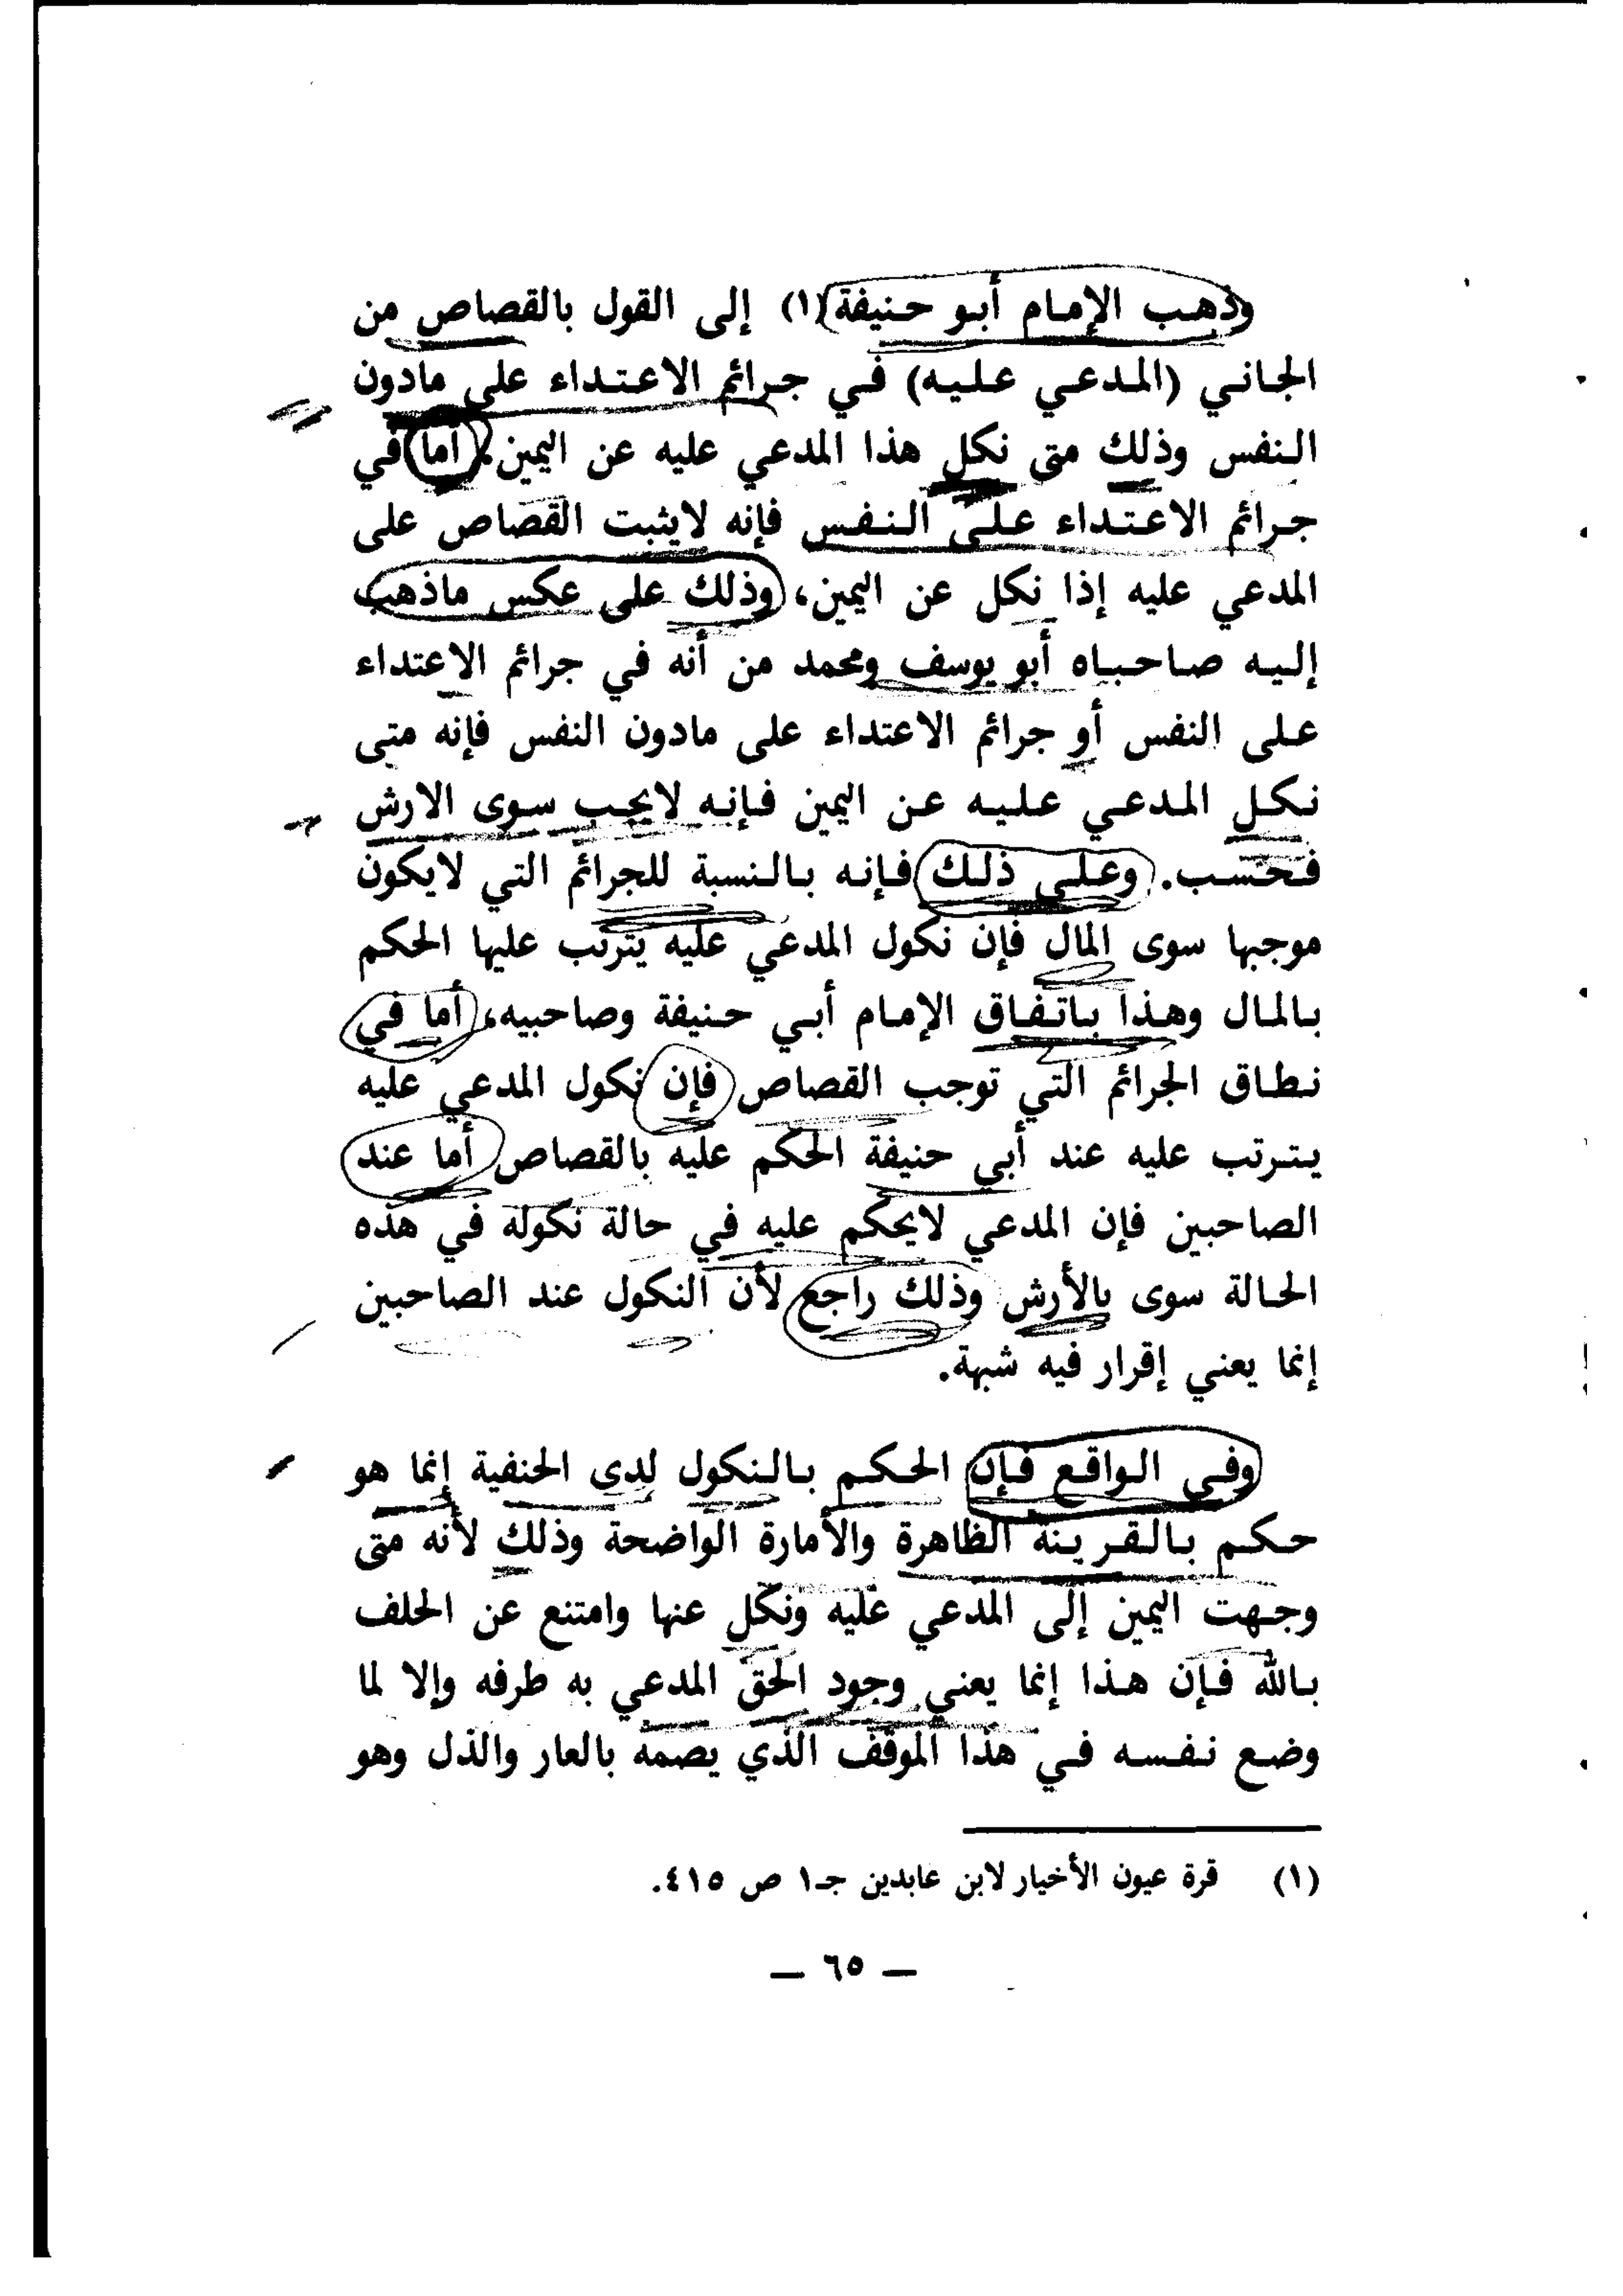 وذهب الإمام أبو حنيفة (١) إلى القول بالقصاص من
الجاني (المدعي عليه) في جرائم الاعتداء على مادون
النفس وذلك متى نكل هذا المدعي عليه عن اليمين، أما في
جرائم الاعتداء على النفس فإنه لايثبت القصاص على
المدعي عليه إذا نكل عن اليمين، وذلك على عكس ماذهب
إليه صاحباه أبو يوسف ومحمد من أنه في جرائم الاعتداء
على النفس أو جرائم الاعتداء على مادون النفس فإنه متى
نكل المدعي عليه عن اليمين فإنه لايجب سوى الارش
فحسب. وعلى ذلك فإنه بالنسبة للجرائم التي لايكون
موجبها سوى المال فإن نكول المدعي عليه يترتب عليها الحكم
بالمال وهذا باتفاق الإمام أبي حنيفة وصاحبيه، أما في
نطاق الجرائم التي توجب القصاص فإن نكول المدعي عليه
يترتب عليه عند أبي حنيفة الحكم عليه بالقصاص أما عند
الصاحبين فإن المدعي لايحكم عليه في حالة نكوله في هذه
الحالة سوى بالأرش وذلك راجع لأن النكول عند الصاحبين
إنما يعني إقرار فيه شبهة.
وفي الواقع فإن الحكم بالنكول لدى الحنفية إنما هو
حكم بالقرينة الظاهرة والأمارة الواضحة وذلك لأنه متى
وجهت اليمين إلى المدعي عليه ونكل عنها وامتنع عن الحلف
بالله فإن هذا إنما يعني وجود الحق المدعي به طرفه وإلا لما
وضع نفسه في هذا الموقف الذي يصمه بالعار والذل وهو
(١) قرة عيون الأخيار لابن عابدين جـ١ ص ٤١٥.
— ٦٥ —